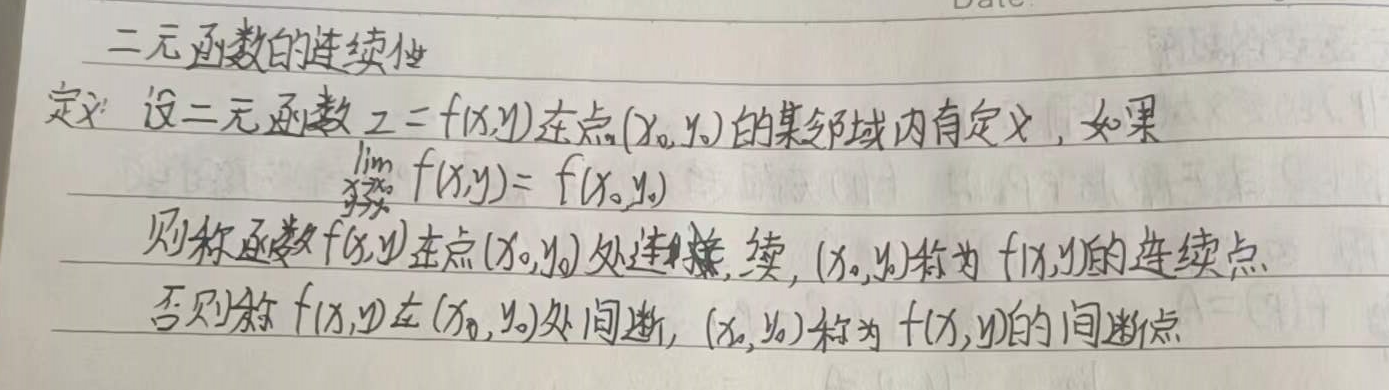 Date
二元函数的连续性
定义: 设二元函数 z=f(x,y)在点(x₀,y₀)的某邻域内有定义, 如果
lim f(x,y)= f(x₀,y₀)
x→x₀
y→y₀
则称函数f(x,y)在点(x₀,y₀)处连续, (x₀,y₀)称为 f(x,y)的连续点.
否则称 f(x,y)在(x₀,y₀)处间断, (x₀,y₀)称为 f(x,y)的间断点